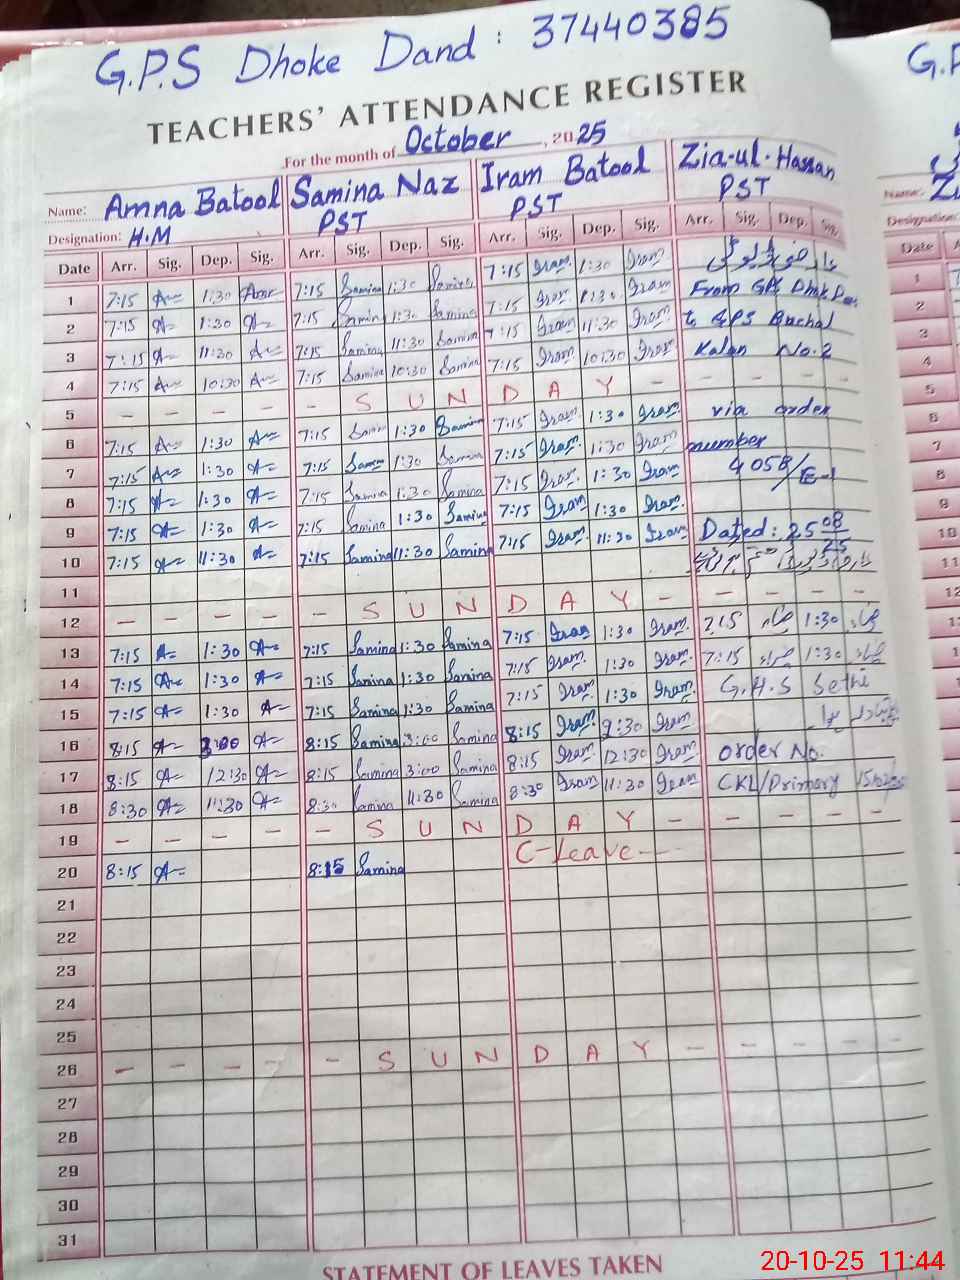 G.P.S Dhoke Dand : 37440385
TEACHERS' ATTENDANCE REGISTER
For the month of October, 2025
Name: Amna Batool Samina Naz Iram Batool Zia-ul-Hassan
Designation: H.M PST PST PST
Date Arr. Sig. Dep. Sig. Arr. Sig. Dep. Sig. Arr. Sig. Dep. Sig. Arr. Sig. Dep. Sig.
1 7:15 A 1:30 7:15 Samina 1:30 Samina 7:15 Iram 1:30 Iram
2 7:15 A 1:30 A 7:15 Samina 1:30 Samina 7:15 Iram 1:30 Iram From GPS Dhok
3 7:15 A 11:30 A 7:15 Samina 11:30 Samina 7:15 Iram 11:30 Iram to GPS Buchal
4 7:15 A 10:30 A 7:15 Samina 10:30 Samina 7:15 Iram 10:30 Iram Kalan No.2
5 - - - - - S U N D A Y - - - - -
6 7:15 A 1:30 A 7:15 Samina 1:30 Samina 7:15 Iram 1:30 Iram via order
7 7:15 A 1:30 A 7:15 Samina 1:30 Samina 7:15 Iram 1:30 Iram number
8 7:15 A 1:30 A 7:15 Samina 1:30 Samina 7:15 Iram 1:30 Iram 4058/E-1
9 7:15 A 1:30 A 7:15 Samina 1:30 Samina 7:15 Iram 1:30 Iram
10 7:15 A 11:30 A 7:15 Samina 11:30 Samina 7:15 Iram 11:30 Iram Dated: 25 08 25
11
12 - - - - - S U N D A Y - - - - -
13 7:15 A 1:30 A 7:15 Samina 1:30 Samina 7:15 Iram 1:30 Iram 7:15 ضیاء 1:30 ضیاء
14 7:15 A 1:30 A 7:15 Samina 1:30 Samina 7:15 Iram 1:30 Iram 7:15 ضیاء 1:30 ضیاء
15 7:15 A 1:30 A 7:15 Samina 1:30 Samina 7:15 Iram 1:30 Iram G.H.S Sethi
16 8:15 A 3:00 A 8:15 Samina 3:00 Samina 8:15 Iram 2:30 Iram
17 8:15 A 12:30 A 8:15 Samina 3:00 Samina 8:15 Iram 12:30 Iram order No.
18 8:30 A 11:30 A 8:30 Samina 11:30 Samina 8:30 Iram 11:30 Iram CKL/Primary
19 - - - - - S U N D A Y - - - - -
20 8:15 A 8:15 Samina C-Leave-
21
22
23
24
25
26 - - - - - S U N D A Y - - - - -
27
28
29
30
31
STATEMENT OF LEAVES TAKEN
20-10-25 11:44
G.P
Name:
Designation:
Date
1
2
3
4
5
6
7
8
9
10
11
12